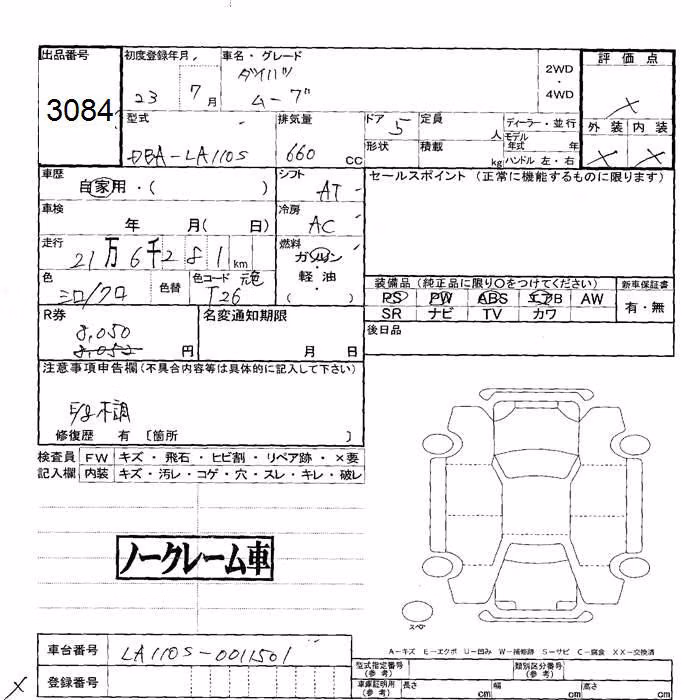 出品番号
3084
初度登録年月
23 7月
車名・グレード
ダイハツ
ムーブ
2WD
・
4WD
評価点
X
外装 内装
X X
型式
DBA-LA110S
排気量
660 CC
ドア 5
定員 人
形状
積載 kg
ディーラー・並行
モデル年式 年
ハンドル 左・右
車歴
自家用・( )
シフト
AT
セールスポイント (正常に機能するものに限ります)
車検
年 月( 日)
冷房
AC
走行
21万6千281km
燃料
ガソリン
・
軽・油
・
( )
色
シロ/クロ
色替
色コード 元色
T26
装備品 (純正品に限り○をつけてください)
新車保証書
PS PW ABS エアB AW
SR ナビ TV カワ
有・無
後日品
R券
8,050
8,052 円
名変通知期限
月 日
注意事項申告欄(不具合内容等は具体的に記入して下さい)
E/g不調
修復歴 有 〔箇所 〕
検査員記入欄
FW キズ・飛石・ヒビ割・リペア跡・×要
内装 キズ・汚レ・コゲ・穴・スレ・キレ・破レ
ノークレーム車
スペア
A-キズ E-エクボ U-凹み W-補修跡 S-サビ C-腐食 XX-交換済
車台番号
LA110S-0011501
登録番号
X
型式指定番号
(参考)
類別区分番号
(参考)
車庫証明用
(参考)
長さ cm
幅 cm
高さ cm